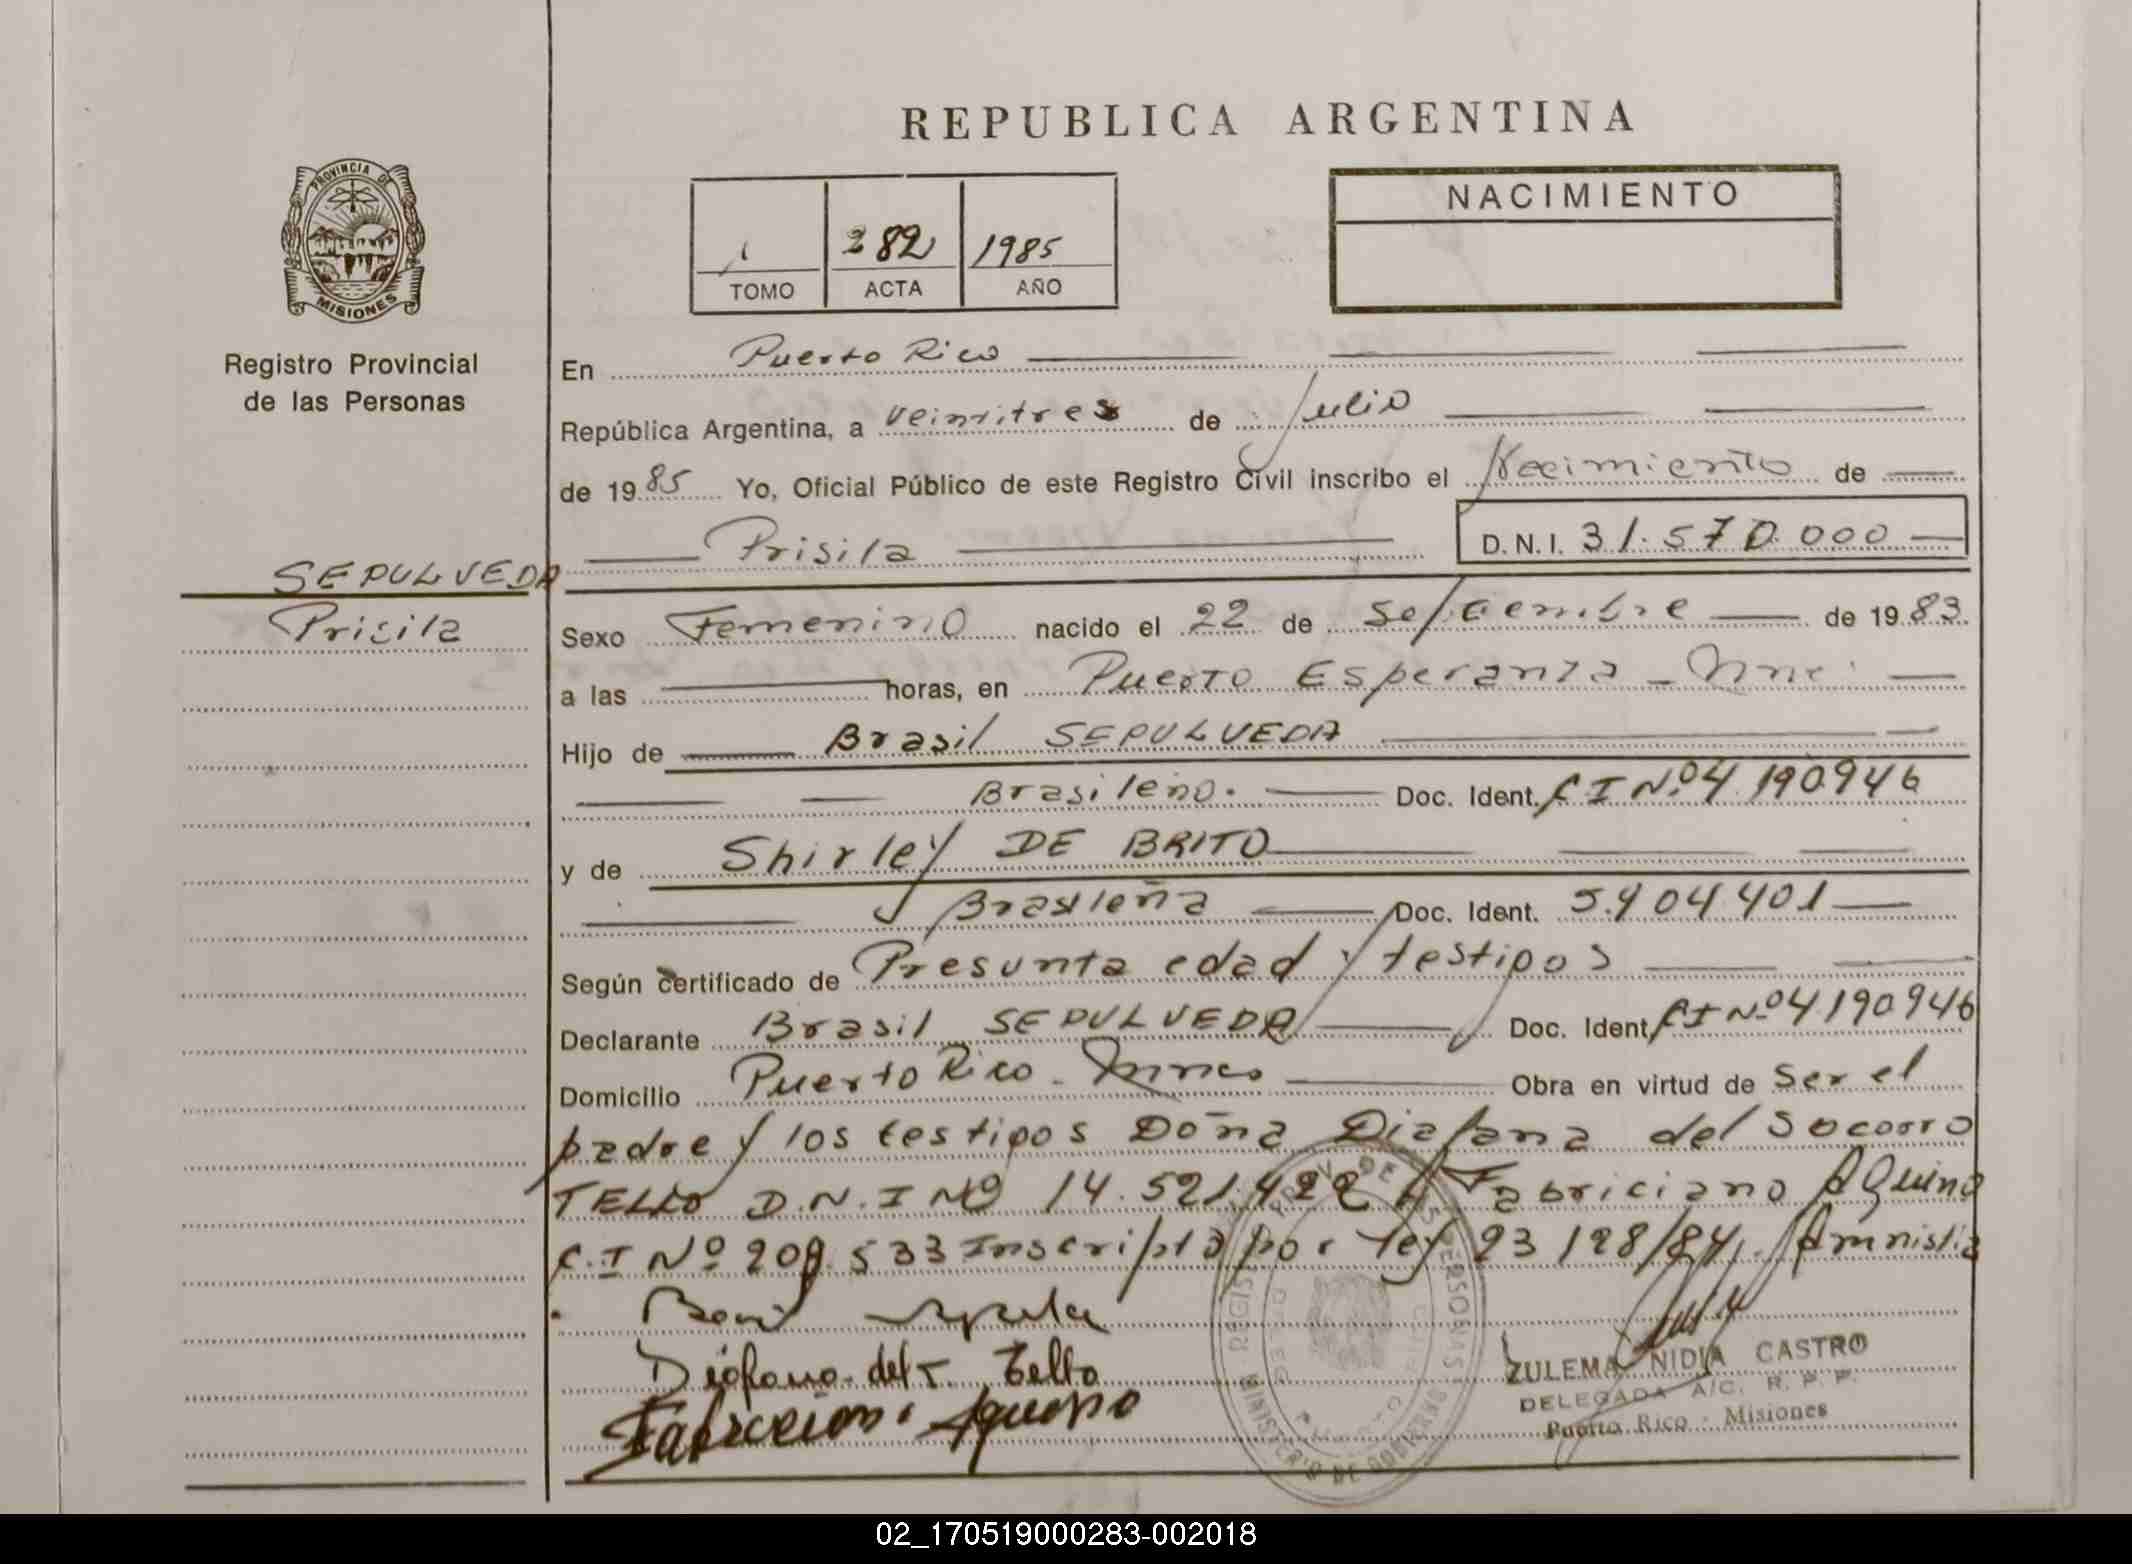 REPUBLICA ARGENTINA
PROVINCIA DE
MISIONES
Registro Provincial
de las Personas
282 1985
TOMO ACTA AÑO
NACIMIENTO
En Puerto Rico
República Argentina, a veintitres de Julio
de 1985 Yo, Oficial Público de este Registro Civil inscribo el Nacimiento de
Prisila D.N.I. 31.570.000
SEPULVEDA
Prisila
Sexo Femenino nacido el 22 de Septiembre de 1983
a las horas, en Puerto Esperanza - Mnes
Hijo de Brasil SEPULVEDA
Brasileño. Doc. Ident. C I Nº 4 190946
y de Shirley DE BRITO
Brasileña Doc. Ident. 5.904.401
Según certificado de Presunta edad y testigos
Declarante Brasil SEPULVEDA Doc. Ident. C I Nº 4190946
Domicilio Puerto Rico - Mnes Obra en virtud de Ser el
padre y los testigos Doña Diafana del Socorro
TELLO D.N.I Nº 14.521.422 y Fabriciano AQuino
C.I Nº 209.533 Inscripta por ley 23 128/84. Amnistia
Diafana del S. Tello
Aquino
ZULEMA NIDIA CASTRO
DELEGADA A/C. R. P. P.
Puerto Rico - Misiones
MINISTERIO DE GOBIERNO
02_170519000283-002018